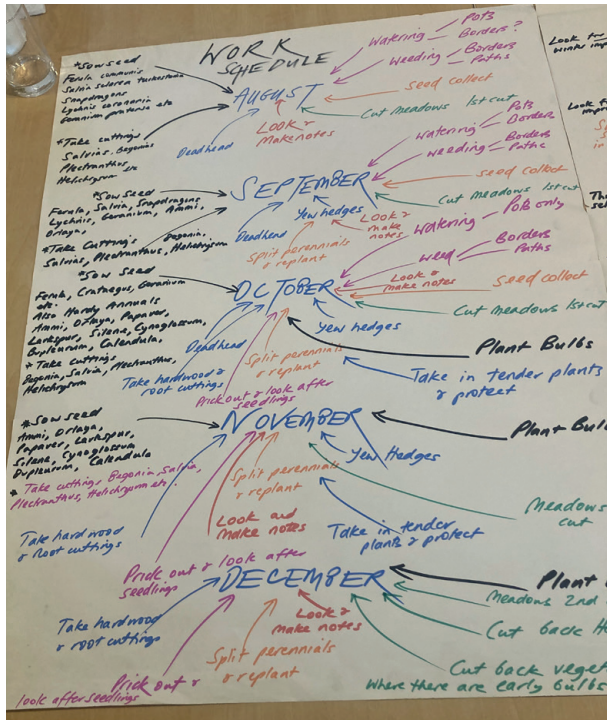 WORK
SCHEDULE
*Sow seed
Ferula communis
Salvia sclarea turkestana
Snapdragons
Lychnis coronaria
Geranium pratense etc
*Take cuttings
Salvias, Begonias
Plectranthus
Helichrysum etc
AUGUST
Watering
Pots
Borders?
Weeding
Borders
Paths
Seed collect
Cut meadows 1st cut
Look &
Make notes
Deadhead
*Sow seed
Ferula, Salvia, Snapdragons
Lychnis, Geranium, Ammi,
Orlaya,
*Take Cuttings Begonia,
Salvias, Plectranthus, Helichrysum
SEPTEMBER
Watering
Pots
Borders
Weeding
Borders
Paths
Seed collect
Cut Meadows 1st cut
Look &
make
notes
Yew hedges
Deadhead
Split perennials
& replant
*Sow seed
Ferula, Crataegus, Geranium
etc.
Also Hardy Annuals
Ammi, Orlaya, Papaver,
Larkspur, Silene, Cynoglossum,
Bupleurum, Calendula,
* Take Cuttings
Begonia, Salvia, Plectranthus,
Helichrysum
OCTOBER
Watering
Pots only
Weed
Borders
Paths
Look &
make notes
Seed collect
Cut meadows 1st cut
Yew hedges
Plant Bulbs
Take in tender plants
& protect
Deadhead
Split perennials
& replant
Take hardwood &
root cuttings
Prick out & look after
seedlings
*Sow seed
Ammi, Orlaya,
Papaver, Larkspur,
Silene, Cynoglossum
Bupleurum, Calendula
* Take cuttings Begonia, Salvia,
Plectranthus, Helichrysum etc.
NOVEMBER
Plant Bul
Yew Hedges
Split perennials
& replant
Meadows
cut
Take in tender
plants & protect
Look and
make notes
Take hardwood
& root cuttings
Prick out & look after
seedlings
DECEMBER
Plant
Meadows 2nd
Cut back H
Cut back veget
Where there are early bulbs
Look &
make notes
Split perennials
& replant
Take hardwood
& root cuttings
Prick out &
look after seedlings
Look for
winks impr
Look f